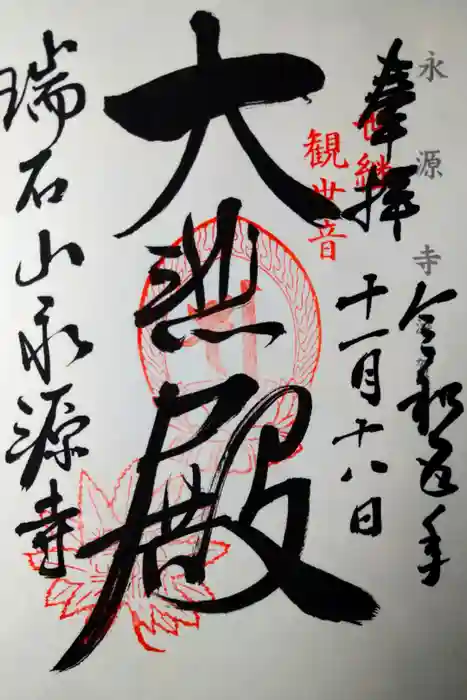 永源寺
奉拝
令和五年
十一月十八日
世継
観世音
大悲殿
瑞石山永源寺